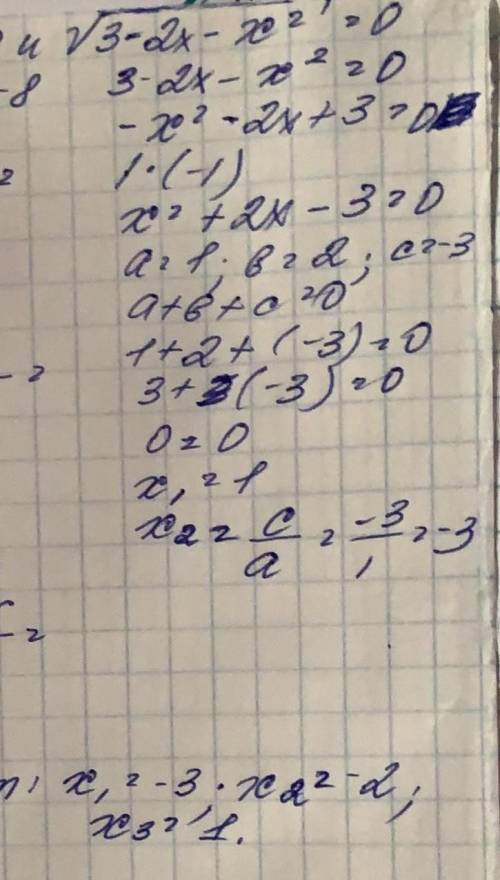 и √3-2x-x² = 0
-8 3-2x-x² = 0
-x²-2x+3=0
1·(-1)
x²+2x-3=0
a=1; в=2; c=-3
a+в+c=0
1+2+(-3)=0
3+(-3)=0
0=0
x₁=1
x₂=c/a=-3/1=-3
x₁=-3; x₂=-2;
x₃=1.